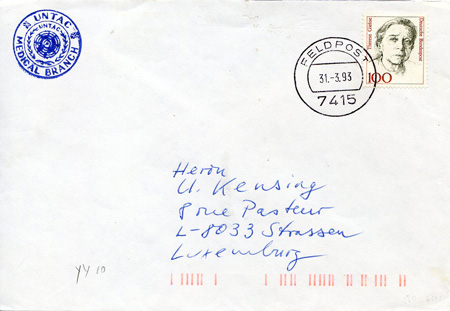 UNTAC
UNTAC
MEDICAL BRANCH
FELDPOST
31.-3.93
7415
Therese Giehse
Deutsche Bundespost
100
Herrn
U. Kensing
8 rue Pasteur
L-8033 Strassen
Luxemburg
YY 10